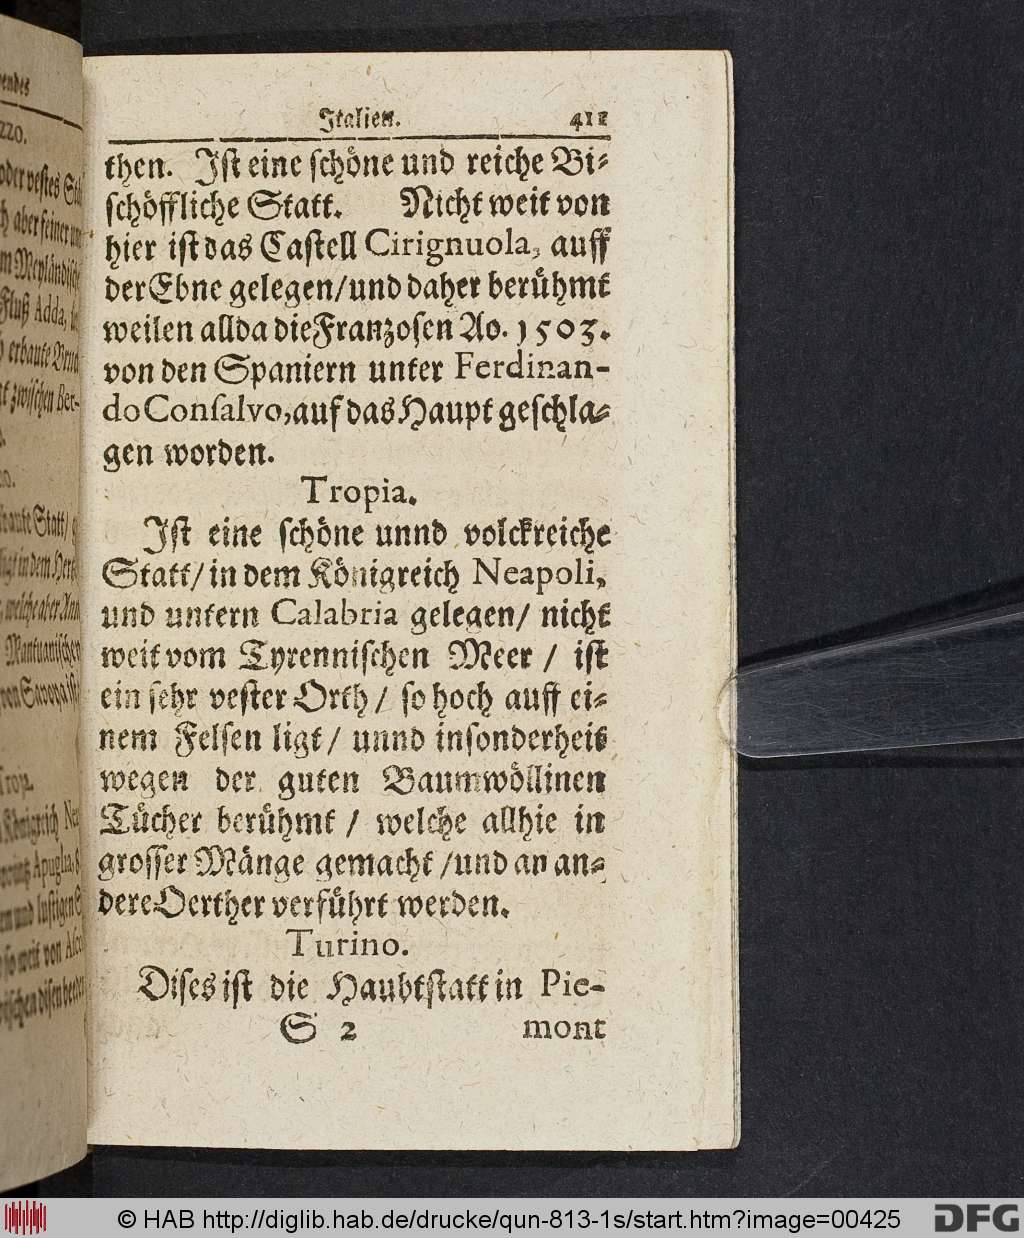 Italien. 411
then. Ist eine schöne und reiche Bi⸗
schöffliche Statt. Nicht weit von
hier ist das Castell Cirignuola, auff
der Ebne gelegen/und daher berühmt
weilen allda die Franzosen Ao. 1503.
von den Spaniern unter Ferdinan-
do Consalvo, auf das Haupt geschla⸗
gen worden.
Tropia.
Ist eine schöne unnd volckreiche
Statt/ in dem Königreich Neapoli,
und untern Calabria gelegen/ nicht
weit vom Tyrennischen Meer / ist
ein sehr vester Orth / so hoch auff ei⸗
nem Felsen ligt / unnd insonderheit
wegen der guten Baumwöllinen
Tücher berühmt / welche allhie in
grosser Mänge gemacht /und an an⸗
dere Oerther verführt werden.
Turino.
Dises ist die Haubtstatt in Pie-
S 2 mont
© HAB http://diglib.hab.de/drucke/qun-813-1s/start.htm?image=00425
DFG